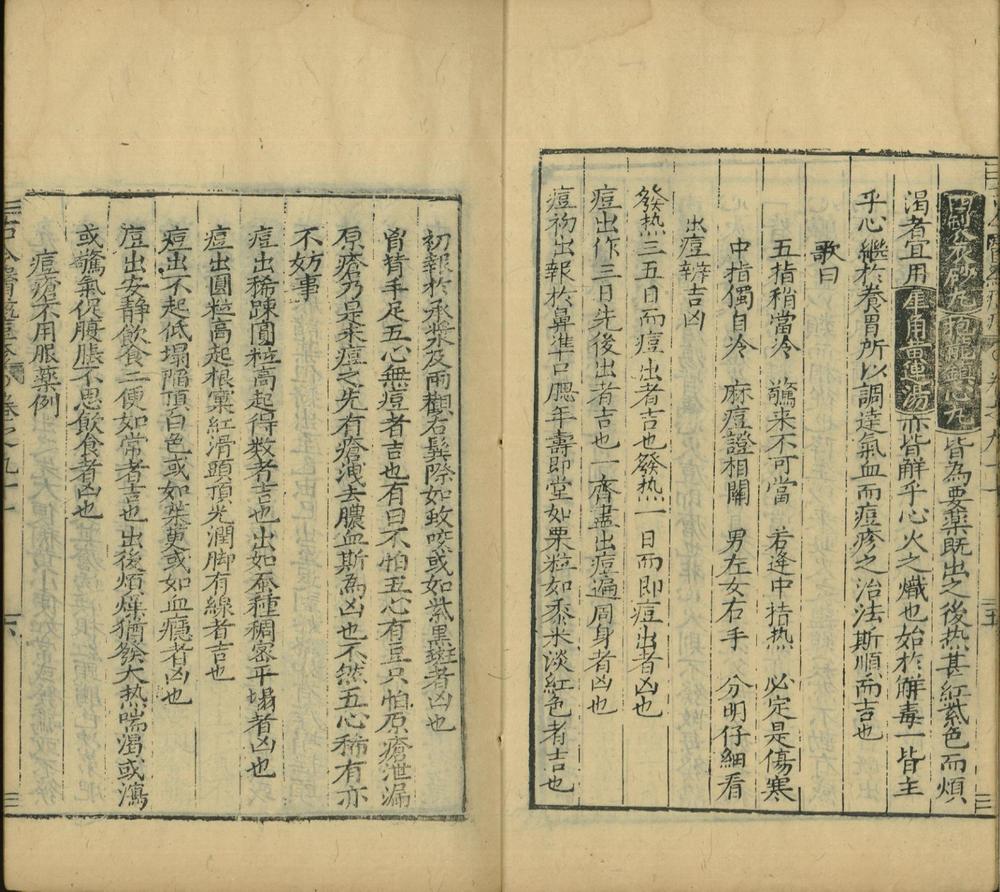 皆為要藥既出之後热甚紅紫色而煩
渴者宜用 湯 亦皆觧乎心火之熾也始於觧毒一皆主
乎心繼於養胃所以調達氣血而痘疹之治法斯順而吉也
歌曰
五指稍當冷 驚来不可當 若逢中指热 必定是傷寒
中指獨自冷 麻痘證相關 男左女右手 分明仔細看
出痘辨吉凶
發热三五日而痘出者吉也發热一日而即痘出者凶也
痘出作三日先後出者吉也一齊盡出痘遍周身者凶也
痘初出報於鼻準口腮年壽即堂如粟粒如黍米淡紅色者吉也
初報於承漿及兩觀若髮際如蚊咬或如紫黑斑者凶也
胷背手足五心無痘者吉也有曰不怕五心有豆只怕原瘡泄漏
原瘡乃是未痘之先有瘡洩去膿血斯為凶也不然五心稀有亦
不妨事
痘出稀踈圓粒高起得数者吉也出如蚕種稠宻平塌者凶也
痘出圓粒高起根窠紅滑頭頂光潤脚有線者吉也
痘出不起低塌陥頂白色或如茱萸或如血癮者凶也
痘出安静飲食二便如常者吉也出後煩燥猶發大热喘渴或瀉
或驚氣促腹脹不思飲食者凶也
痘瘡不用服藥例